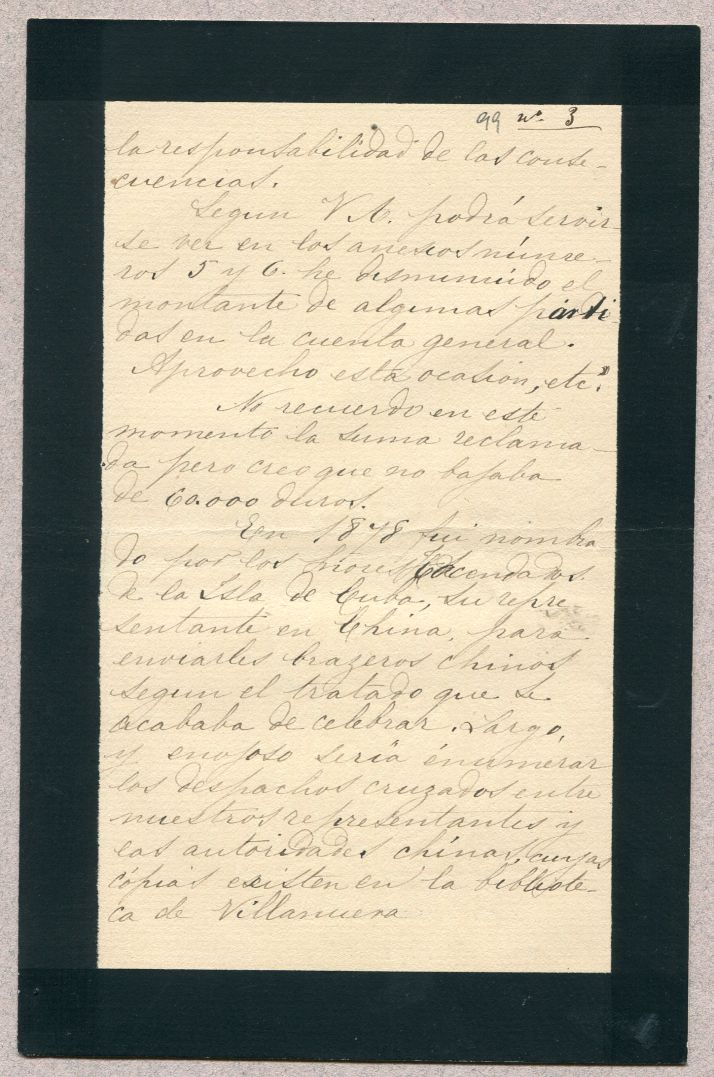 99 nº 3
la responsabilidad de las conse-
cuencias.
Segun V. A. podrá servir-
se ver en los anexos núme-
ros 5 y 6. he disminuido el
montante de algunas parti-
das en la cuenta general.
Aprovecho esta ocasion, etcª
No recuerdo en este
momento la suma reclama-
da pero creo que no bajaba
de 60.000 duros.
En 1878 fui nombra
do por los Hacendados
de la Isla de Cuba, su repre
sentante en China, para
enviarles brazeros chinos
segun el tratado que se
acababa de celebrar. Largo,
y enojoso seria enumerar
los despachos cruzados entre
nuestros representantes y
las autoridades chinas, cuyas
cópias existen en la bibliote-
ca de Villanueva